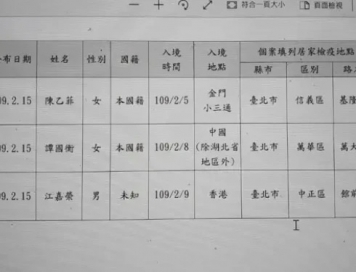 符合一頁大小 頁面檢視
布日期 姓名 性別 國籍 入境時間 入境地點 個案填列居家檢疫地點
縣市 區別 路
09.2.15 陳乙菲 女 本國籍 109/2/5 金門小三通 臺北市 信義區 基隆
09.2.15 譚國衡 女 本國籍 109/2/8 中國(除湖北省地區外) 臺北市 萬華區 萬大
09.2.15 江嘉榮 男 未知 109/2/9 香港 臺北市 中正區 館前